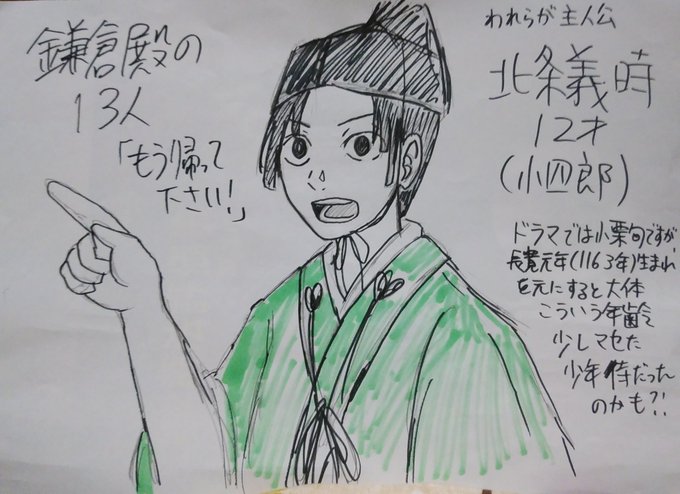 鎌倉殿の
13人
「もう帰って
下さい!」
われらが主人公
北条義時
12才
(小四郎)
ドラマでは小栗旬ですが、
長寛元年(1163年)生まれ
を元にすると大体
こういう年齢で
少しマセた
少年侍だった
のかも?!